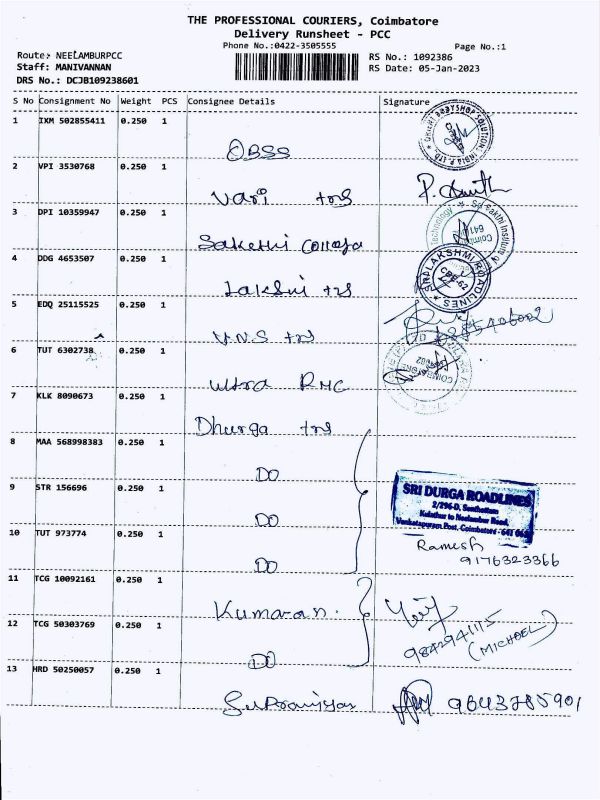 THE PROFESSIONAL COURIERS, Coimbatore
Delivery Runsheet - PCC
Phone No.:0422-3505555
Page No.:1
Route: NEELAMBURPCC
RS No.: 1092386
Staff: MANIVANNAN
RS Date: 05-Jan-2023
DRS No.: DCJB109238601
S No Consignment No Weight PCS Consignee Details Signature
1 IXM 502855411 0.250 1
OBSS
2 VPI 3530768 0.250 1
Vari trs
3 DPI 10359947 0.250 1
Sakethi College
4 DDG 4653507 0.250 1
Lakshi trs
SRI LAKSHMI ROADLINES
CBE-62
5 EDQ 25115525 0.250 1
V.N.S trs
6 TUT 6302738 0.250 1
Ultra RMC
7 KLK 8090673 0.250 1
Dhurga trs
8 MAA 568998383 0.250 1
DO
9 STR 156696 0.250 1
DO
SRI DURGA ROADLINES
2/296-D,
Kalathur to Neelambur Road,
Venkatapuram Post, Coimbatore - 641 062
10 TUT 973774 0.250 1
DO
Ramesh
9176323366
11 TCG 10092161 0.250 1
Kumaran.
12 TCG 50303769 0.250 1
DO
9842941115
(MICHOEL)
13 HRD 50250057 0.250 1
9843785901